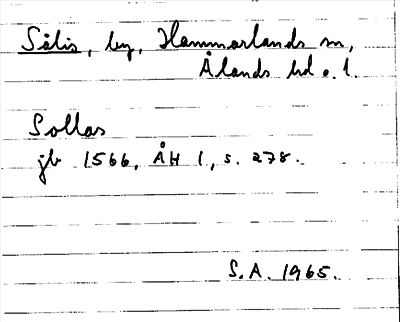 Sålis, by, Hammarlands sn,
Ålands hd o. l.
Sollas
jb 1566, ÅH 1, s. 278.
S.A. 1965.